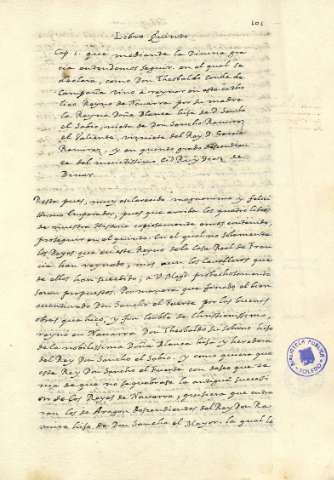 101
Libro Quinto
Cap. 1. que mediante la Divina gra
cia entendemos seguir, en el qual se
declara, como Don Theobaldo conde de
Campaña vino a reynar en este
Reyno de Navarra por su madre
la Reyna Doña Blanca hija de D. Sancho
el Sabio, nieta de Don Sancho Ramirez
el Valiente, visnieta del Rey D. Garcia
Ramirez, y en quanto grado
del Cid Ruy Diaz de
Vivar.
Resta pues, muy esclarecido magnanimo y felici
ssimo Emperador, pues que escrito los quatro libros
de nuestra Historia copiosamente emos contenido,
proseguir en el quinto. en el qual no solamente
los Reyes que en este Reyno de la Casa Real de Fran
cia han reynado, mas aun los
de ellos han sucedido, a V. Magd.
seran propuestos. Por manera que finado el bien
Don Sancho el Fuerte por las buenas
obras que hizo, y fin loable de Christianissimo,
reynó en Navarra Don Theobaldo su sobrino hijo
de la nobilissima Doña Blanca hija y heredera
del Rey Don Sancho el Sabio. y como quiera que
este Rey Don Sancho el Fuerte con deseo que te
nia de que no se quebrase la antigua sucessi
on de los Reyes de Navarra, quisiera que entra
ran los de Aragon descendientes del Rey Don Ra
miro hijo de Don Sancho el Mayor, la qual le
BIBLIOTECA PUBLICA
TOLEDO